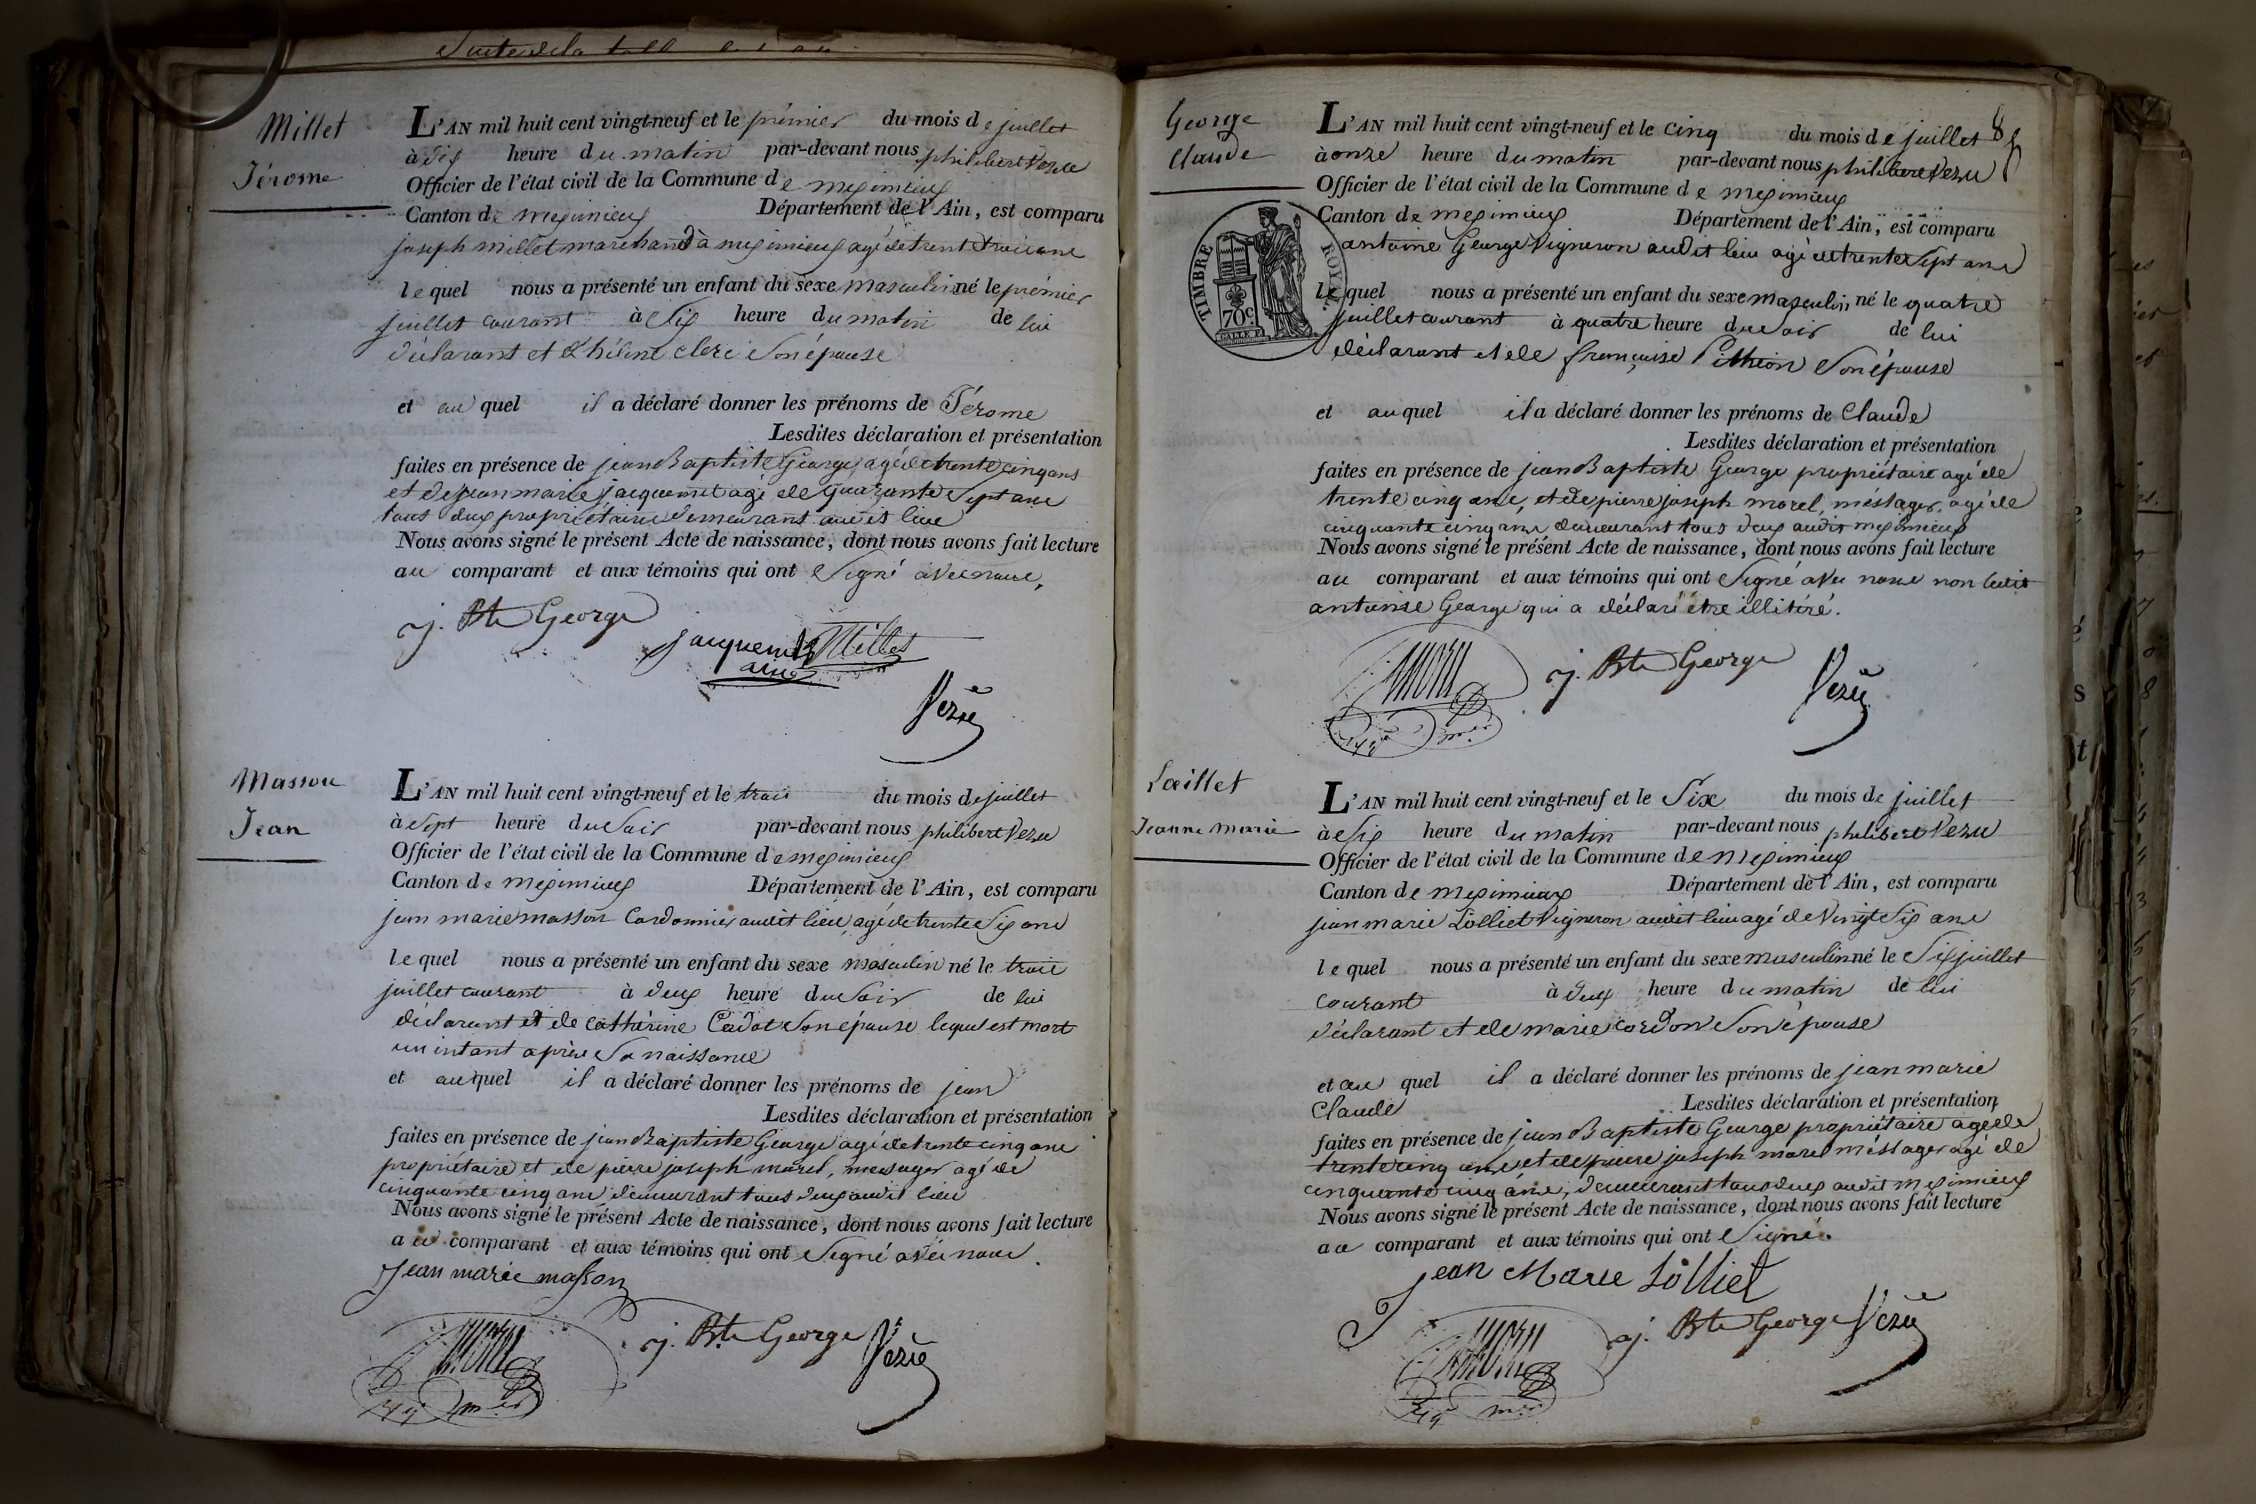 Millet
Jérome
L'AN mil huit cent vingt-neuf et le prémier du mois de juillet
à dix heure du matin par-devant nous philibert Vezu
Officier de l'état civil de la Commune de meximieux
Canton de meximieux Département de l'Ain, est comparu
joseph millet marchand à meximieux agé de trente trois ans
lequel nous a présenté un enfant du sexe masculin né le prémier
juillet courant à six heure du matin de lui
déclarant et d'hélene clerc son épouse
et au quel il a déclaré donner les prénoms de Jérome
Lesdites déclaration et présentation
faites en présence de jean Baptiste George agé de trente cinq ans
et de jean marie jacquemet agé de quarante Sept ans
tous deux propriétaires demeurant audit lieu
Nous avons signé le présent Acte de naissance, dont nous avons fait lecture
au comparant et aux témoins qui ont Signé avec nous.
j. Bte George
jacquemet Millet
ainé
Vezu
Masson
Jean
L'AN mil huit cent vingt-neuf et le trois du mois de juillet
à Sept heure du Soir par-devant nous philibert Vezu
Officier de l'état civil de la Commune de meximieux
Canton de meximieux Département de l'Ain, est comparu
jean marie masson Cordonnier audit lieu, agé de trente Six ans
lequel nous a présenté un enfant du sexe masculin né le trois
juillet courant à deux heure du Soir de lui
déclarant et de cathérine Cadot Son épouse lequel est mort
un intant après Sa naissance
et auquel il a déclaré donner les prénoms de jean
Lesdites déclaration et présentation
faites en présence de jean Baptiste George agé de trente cinq ans
propriétaire et de pierre joseph morel, messager agé de
cinquante cinq ans, demeurant tous deux audit lieu
Nous avons signé le présent Acte de naissance, dont nous avons fait lecture
au comparant et aux témoins qui ont Signé avec nous.
Jean marie masson
j. Bte George Vezu
George
Claude
8
L'AN mil huit cent vingt-neuf et le Cinq du mois de juillet
à onze heure du matin par-devant nous philibert Vezu
Officier de l'état civil de la Commune de meximieux
Canton de meximieux Département de l'Ain, est comparu
antoine George Vigneron audit lieu agé de trente Sept ans
TIMBRE ROYAL
70c
lequel nous a présenté un enfant du sexe masculin né le quatre
juillet courant à quatre heure du Soir de lui
déclarant et de françoise Pithion Son épouse
et auquel il a déclaré donner les prénoms de Claude
Lesdites déclaration et présentation
faites en présence de jean Baptiste George propriétaire agé de
trente cinq ans, et de pierre joseph morel, méssager, agé de
cinquante cinq ans demeurant tous deux audit meximieux
Nous avons signé le présent Acte de naissance, dont nous avons fait lecture
au comparant et aux témoins qui ont Signé avec nous non ledit
antoine George qui a déclaré être illitéré.
j. Bte George Vezu
Lœillet
Jeanne Marie
L'AN mil huit cent vingt-neuf et le Six du mois de juillet
à Six heure du matin par-devant nous philibert Vezu
Officier de l'état civil de la Commune de meximieux
Canton de meximieux Département de l'Ain, est comparu
jean marie Lolliet Vigneron audit lieu agé de Vingt Six ans
lequel nous a présenté un enfant du sexe masculin né le Six juillet
courant à deux heure du matin de lui
déclarant et de marie cordon Son épouse
et au quel il a déclaré donner les prénoms de jean marie
Claude Lesdites déclaration et présentation
faites en présence de jean Baptiste George propriétaire agé de
trente cinq ans et de pierre joseph morel méssager agé de
cinquante cinq ans, demeurant tous deux audit meximieux
Nous avons signé le présent Acte de naissance, dont nous avons fait lecture
au comparant et aux témoins qui ont Signé.
jean Marie Lolliet
j. Bte George Vezu